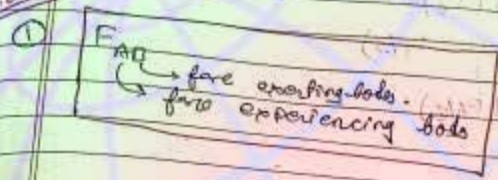 ①
F_AB
→ force exerting body.
→ force experiencing body